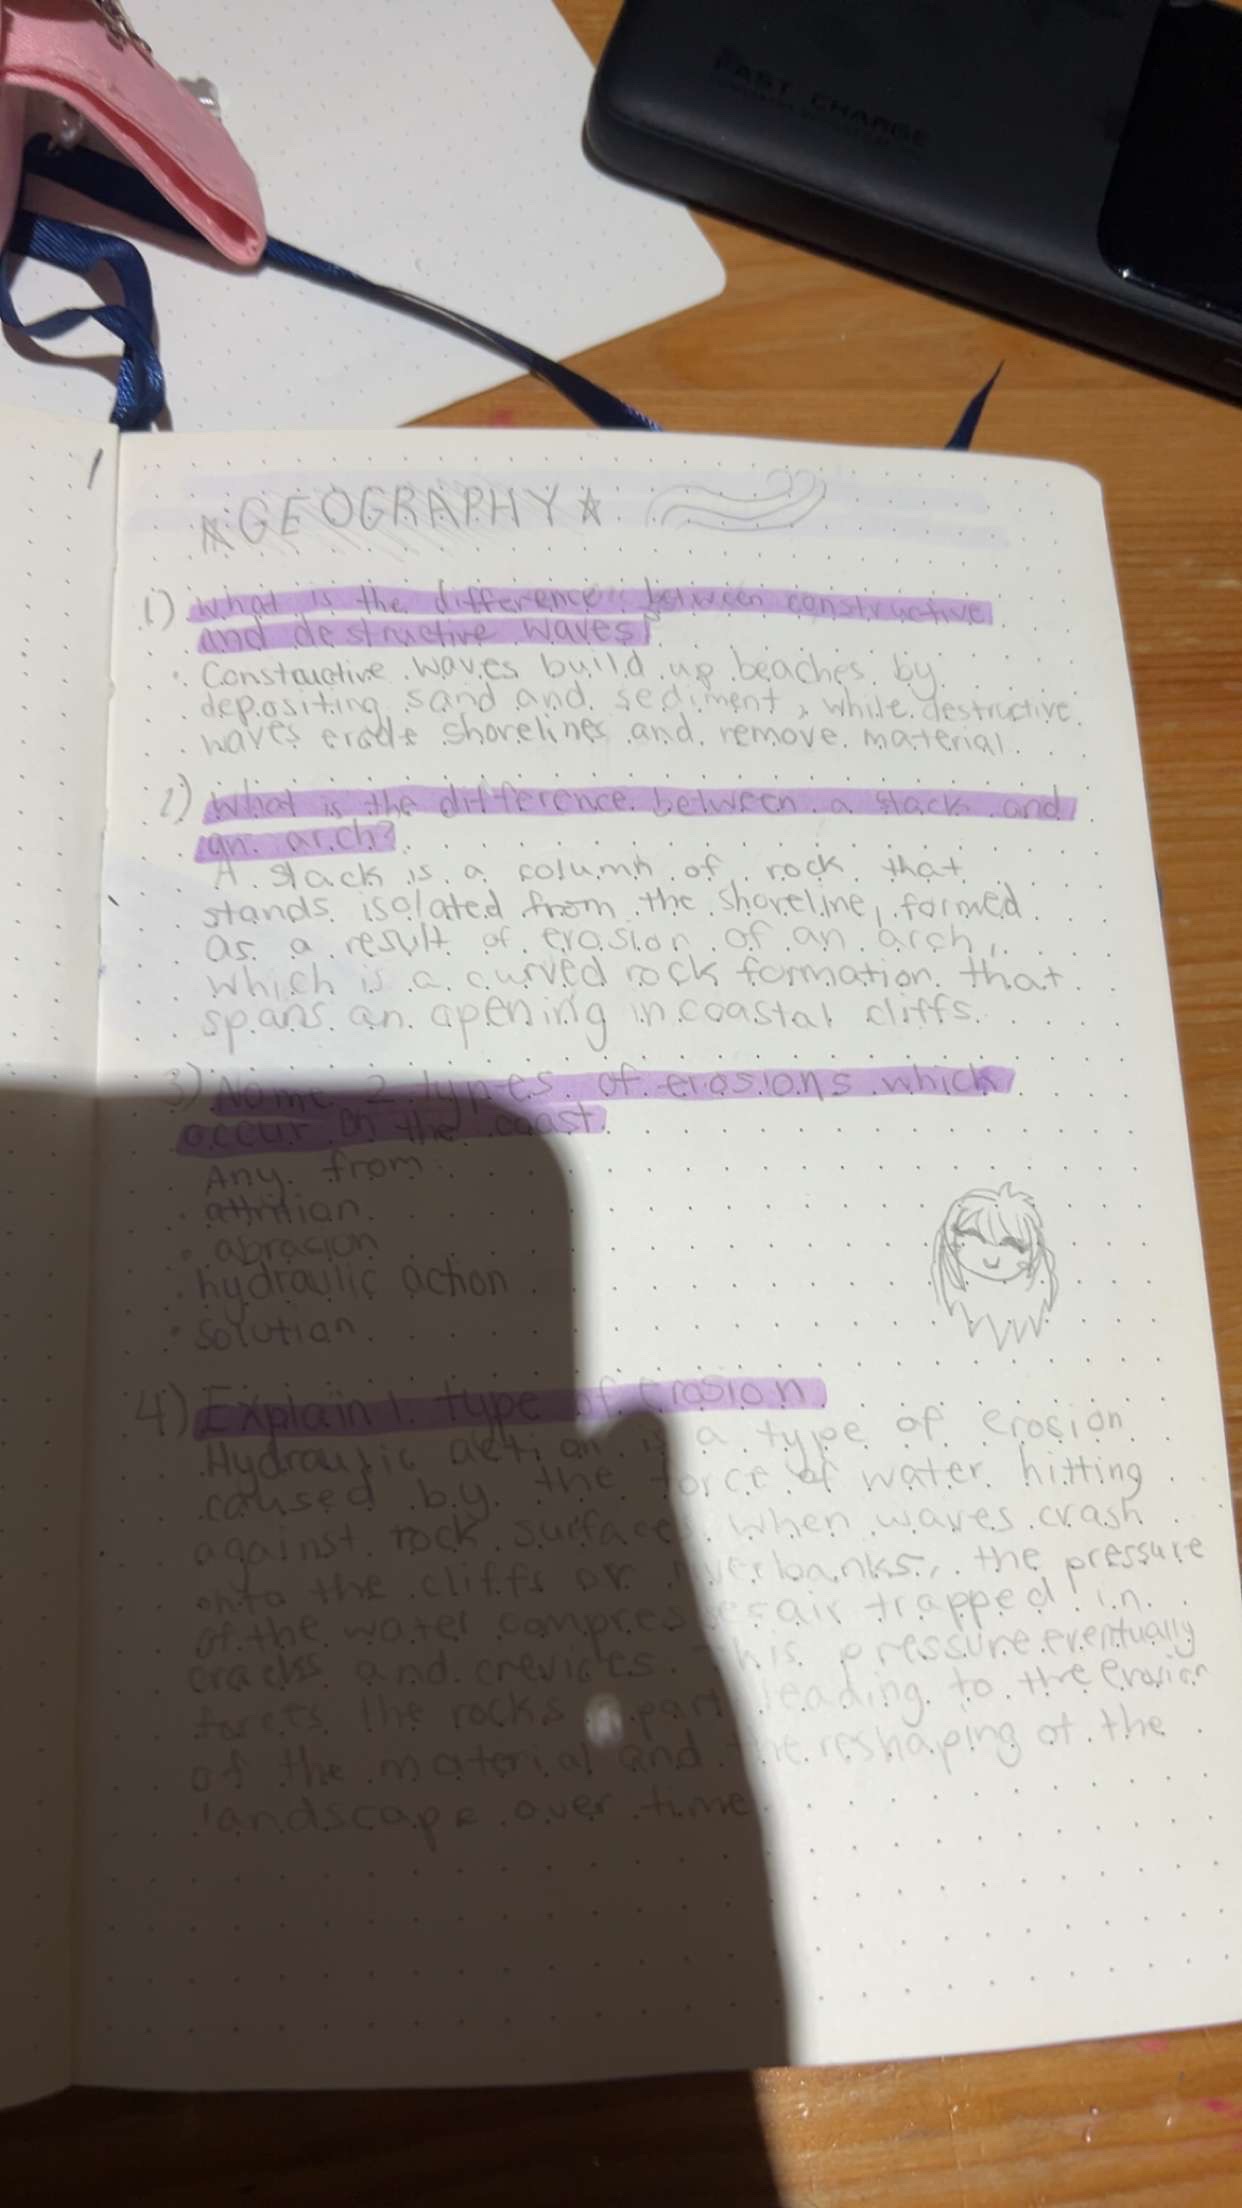 FAST CHARGE
GEOGRAPHY
1) What is the difference between constructive
and destructive waves?
Constructive waves build up beaches by
depositing sand and sediment, while destructive
waves erode shorelines and remove material.
2) What is the difference between a stack and
an arch?
A stack is a column of rock that
stands isolated from the shoreline, formed
as a result of erosion of an arch,
which is a curved rock formation that
spans an opening in coastal cliffs.
3) Name 2 types of erosions which
occur on the coast.
Any from
attrition
abrasion
hydraulic action
solution
4) Explain 1 type of erosion
Hydraulic action is a type of erosion
caused by the force of water hitting
against rock surfaces. When waves crash
onto the cliffs or riverbanks, the pressure
of the water compresses air trapped in
cracks and crevices. This pressure eventually
forces the rocks apart leading to the erosion
of the material and the reshaping of the
landscape over time